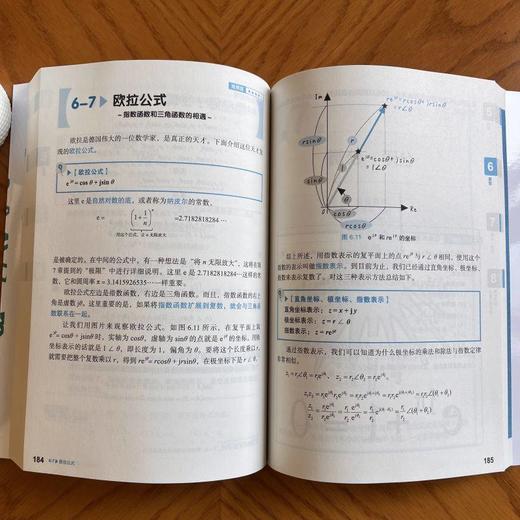 6–7 ▶ 欧拉公式
~ 指数函数和三角函数的相遇 ~
欧拉是德国伟大的一位数学家，是真正的天才。下面介绍这位天才发
现的欧拉公式。
▶【欧拉公式】
e^{jθ} = cos θ + jsin θ
这里 e 是自然对数的底，或者称为纳皮尔的常数，
e = (1+1/n)^n =2.7182818284 ⋯
用这个公式，让 n 无限放大
是被确定的。在中间的公式中，有一种想法是“将 n 无限放大”，这将在第
7 章提到的“极限”中进行详细说明。这里 e 是 2.7182818284⋯这样的常
数，它和圆周率 π = 3.1415926535⋯一样重要。
欧拉公式左边是指数函数，右边是三角函数。而且，指数函数的右上
角是虚数 jθ，这里重要的是，如果将指数函数扩展到复数，就会与三角函
数联系在一起。
让我们用图片来观察欧拉公式。如图 6.11 所示，在复平面上取
e^{jθ} = cosθ + jsinθ 时，实轴为 cosθ，虚轴为 sinθ 的点就是 e^{jθ} 的坐标。用极
坐标表示的话就是 1∠θ，即长度为 1，偏角为 θ。要将这个长度乘以 r，
就需要把整个复数乘以 r，得到 re^{jθ} = rcosθ + jrsinθ，在极坐标下是 r∠θ。
184 6–7 ▶ 欧拉公式
Im
re^{jθ}=rcosθ+jrsinθ
=r∠θ
rsinθ
r
sinθ
e^{jθ}=cosθ+jsinθ
=1∠θ
1
θ
0
cosθ
Re
rcosθ
图 6.11 e^{jθ} 和 re^{jθ} 的坐标
如上所述，用指数表示的复平面上的点 re^{jθ} 与 r∠θ 相同，使用这个
指数的表示叫做指数表示。到目前为止，我们已经通过直角坐标、极坐标、
指数来表示复数了。对这三种表示方法总结如下。
▶【直角坐标、极坐标、指数表示】
直角坐标表示：z = x + jy
极坐标表示：z = r∠θ
指数表示：z = re^{jθ}
通过指数表示，我们可以知道为什么极坐标的乘法和除法与指数定律
非常相似。
z₁ = r₁∠θ₁ = r₁e^{jθ₁}、z₂ = r₂∠θ₂ = r₂e^{jθ₂}。
z₁z₂ = r₁e^{jθ₁}r₂e^{jθ₂} = r₁r₂e^{jθ₁}e^{jθ₂} = r₁r₂e^{j(θ₁+θ₂)} = r₁r₂∠(θ₁+θ₂)
z₁/z₂ = r₁e^{jθ₁}/r₂e^{jθ₂} = r₁/r₂ e^{jθ₁}/e^{jθ₂} = r₁/r₂ e^{j(θ₁−θ₂)} = r₁/r₂ ∠(θ₁−θ₂)
5
6
7
185